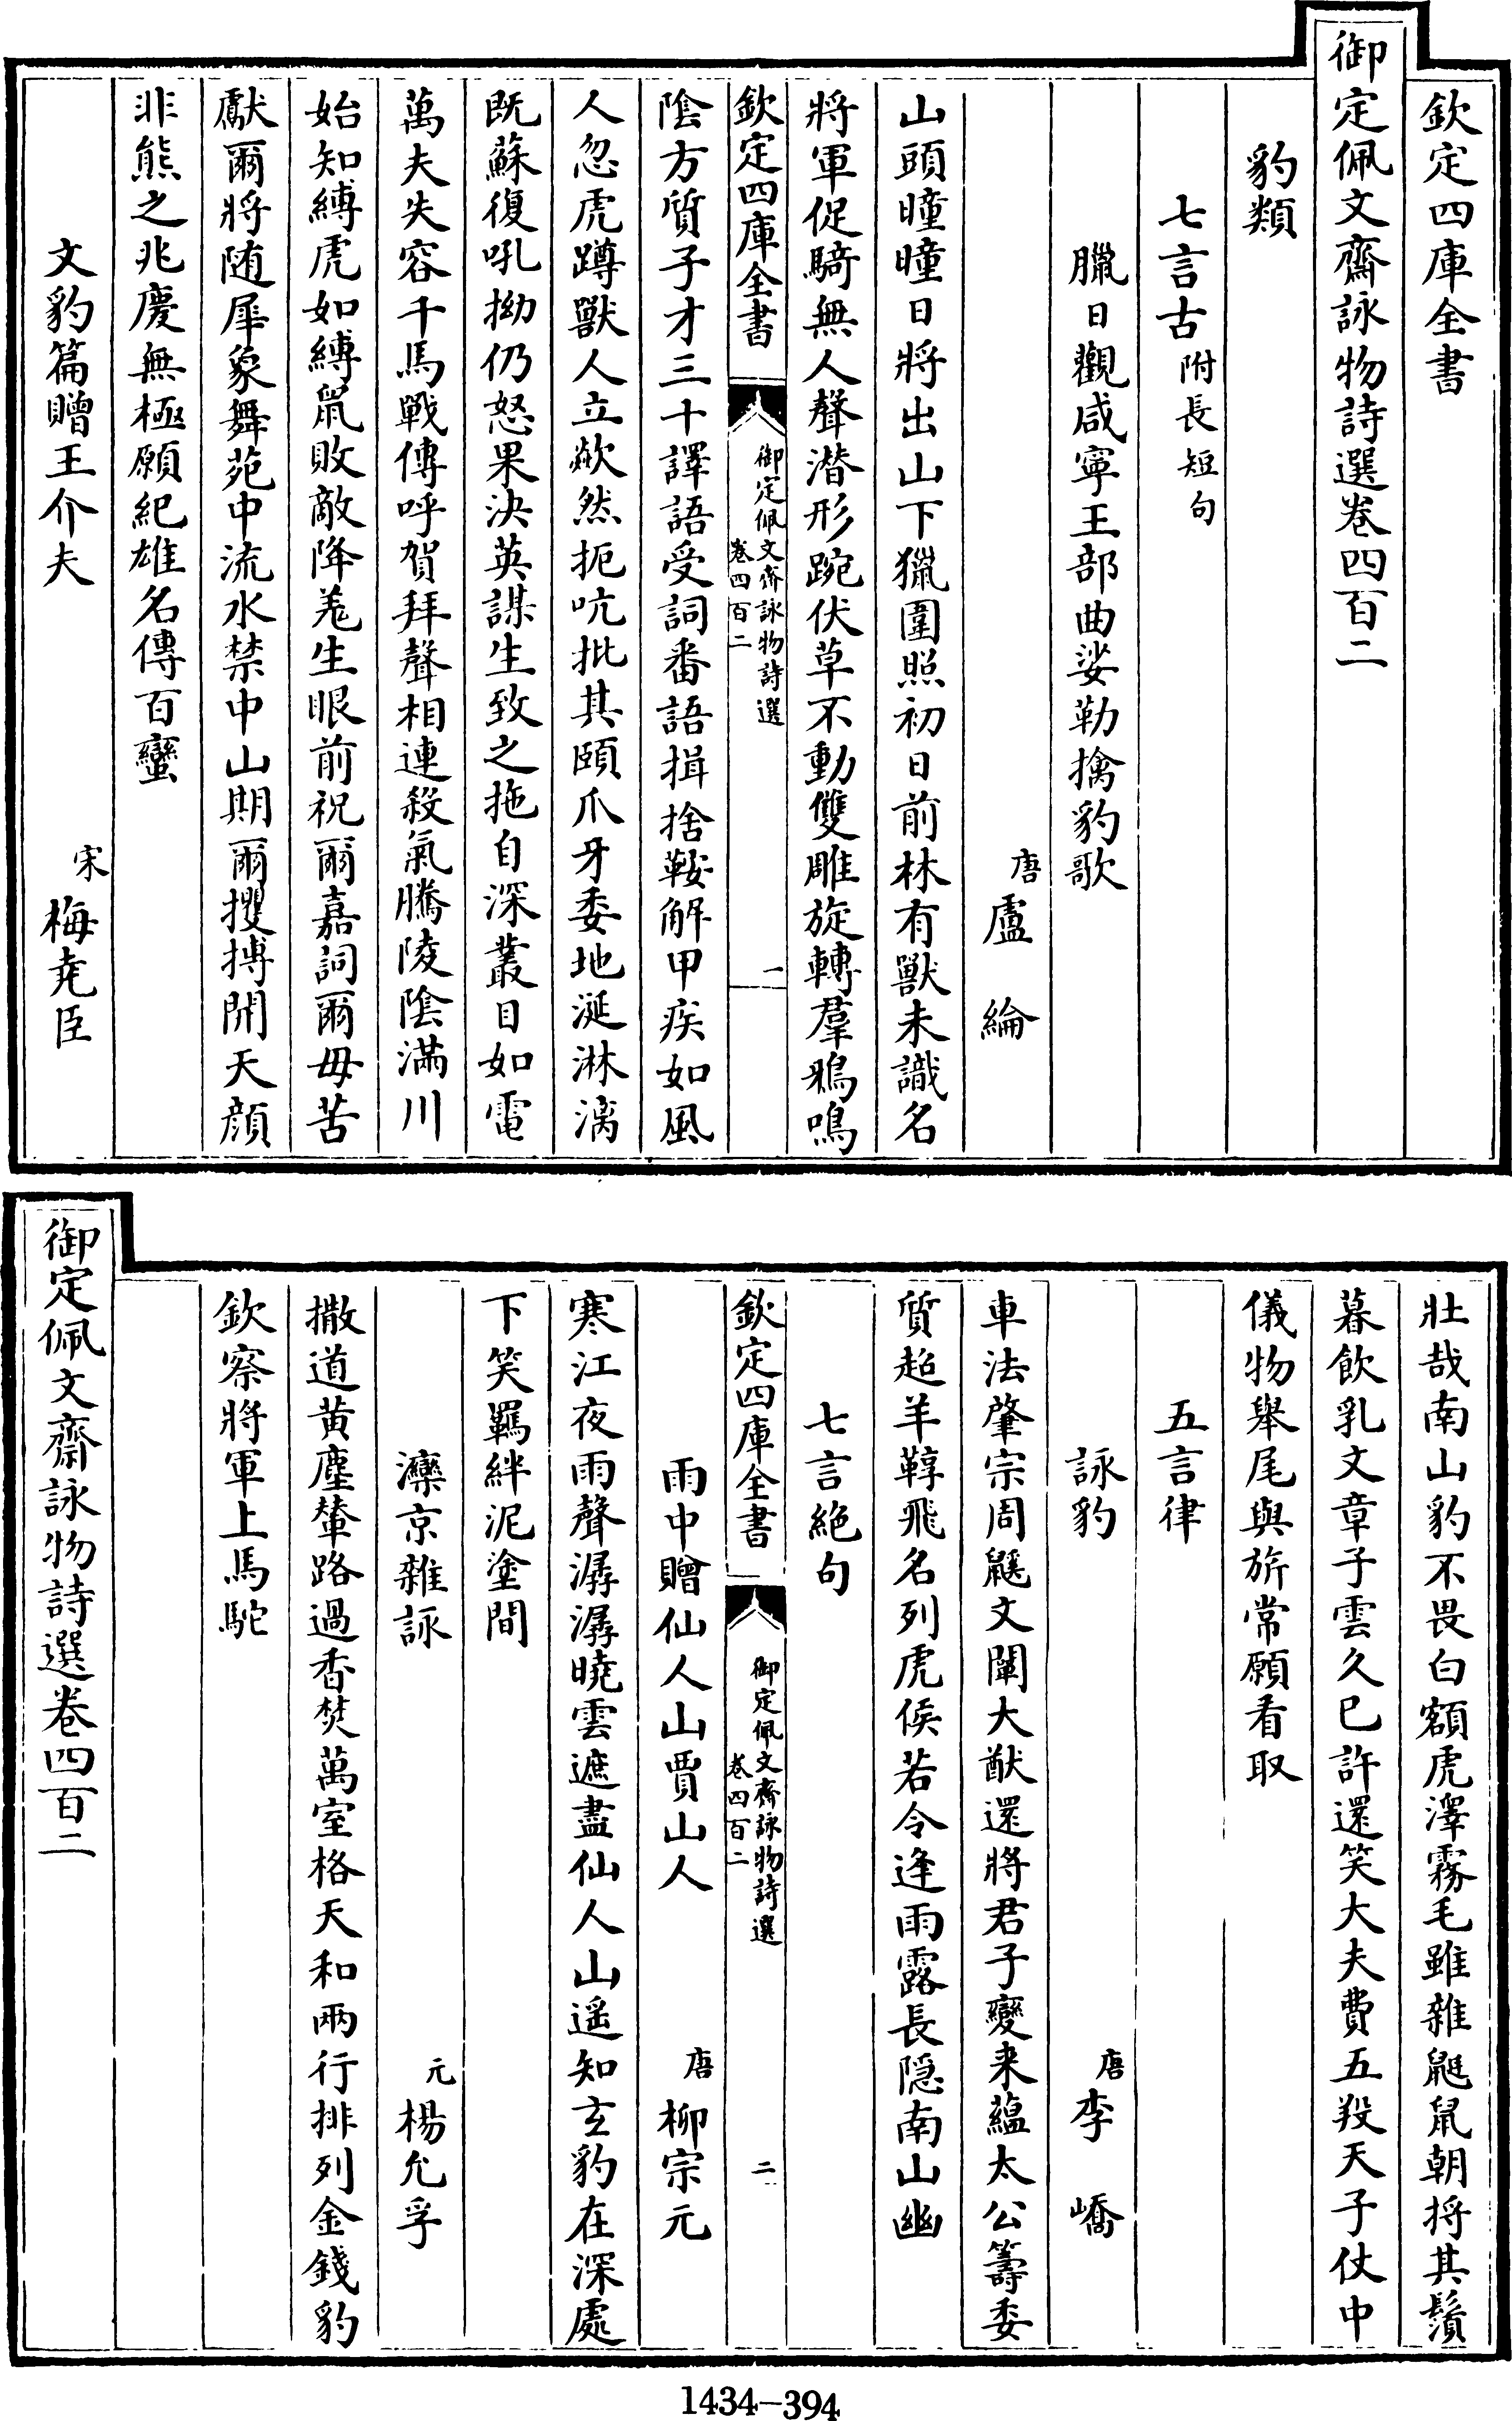 欽定四庫全書
御定佩文齋詠物詩選卷四百二
豹類
七言古附長短句
臘日觀咸寧王部曲娑勒擒豹歌
唐盧綸
山頭曈曈日將出山下獵圍照初日前林有獸未識名
將軍促騎無人聲潛形踠伏草不動雙雕旋轉羣鵶鳴
欽定四庫全書
御定佩文齋詠物詩選
卷四百二
一
陰方質子才三十譯語受詞番語揖捨鞍解甲疾如風
人忽虎蹲獸人立歘然扼吭批其頤爪牙委地涎淋漓
既蘇復吼拗仍怒果決英謀生致之拖自深叢目如電
萬夫失容千馬戰傳呼賀拜聲相連殺氣騰陵陰滿川
始知縛虎如縛鼠敗敵降羗生眼前祝爾嘉詞爾毋苦
獻爾將随犀象舞苑中流水禁中山期爾攫搏開天顏
非熊之兆慶無極願紀雄名傳百蠻
文豹篇贈王介夫
宋梅堯臣
壯哉南山豹不畏白額虎澤霧毛雖雜鼮鼠朝捋其鬚
暮飲乳文章子雲久巳許還笑大夫費五羖天子仗中
儀物舉尾與旂常願看取
五言律
詠豹
唐李嶠
車法肇宗周鼷文闡大猷還將君子變来蘊太公籌委
質超羊鞟飛名列虎侯若令逢雨露長隠南山幽
七言絕句
欽定四庫全書
御定佩文齋詠物詩選
卷四百二
二
雨中贈仙人山賈山人
唐柳宗元
寒江夜雨聲潺潺曉雲遮盡仙人山遥知玄豹在深處
下笑羈絆泥塗間
灤京雜詠
元楊允孚
撒道黃塵輦路過香焚萬室格天和兩行排列金錢豹
欽察將軍上馬駝
御定佩文齋詠物詩選卷四百二
1434-394